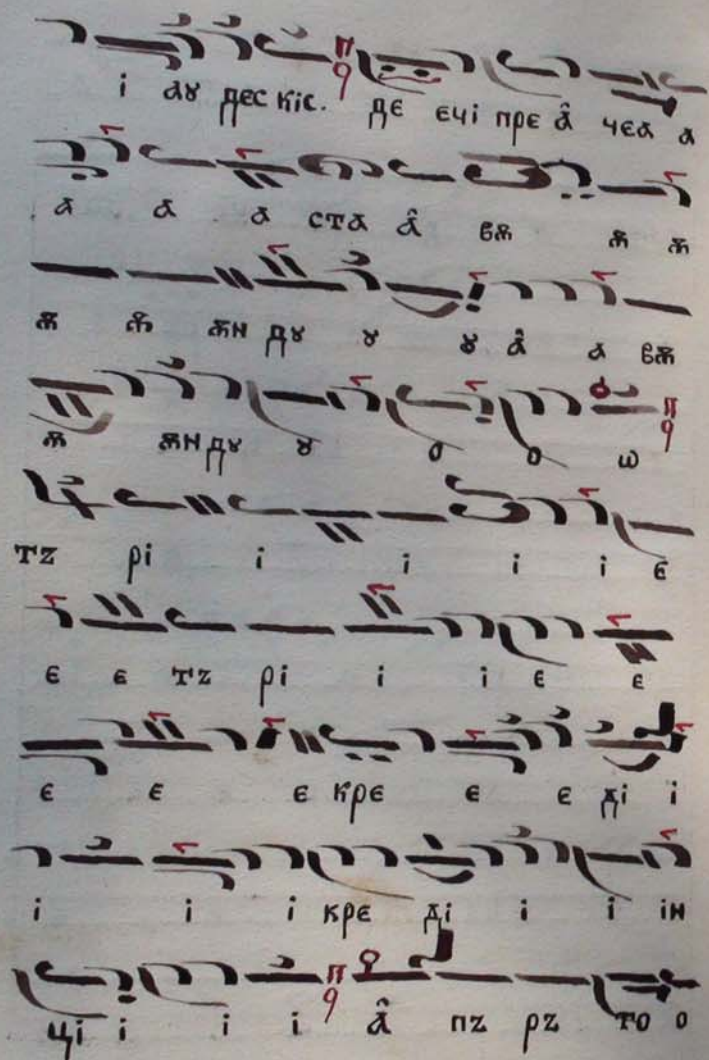 і аꙋ дес кіс. дє єчі прє а̂ чєа а
а а а ста а̂ вѫ ѫ ѫ
ѫ ѫ ѫн дꙋ ꙋ ꙋ а̂ а вѫ
ѫ ѫн дꙋ ꙋ о о ѡ
тz рі і і і і є
є є тz рі і і є є
є є є крє є є ді і
і і і крє ді і і ін
ці і і і а̂ пz рz то о